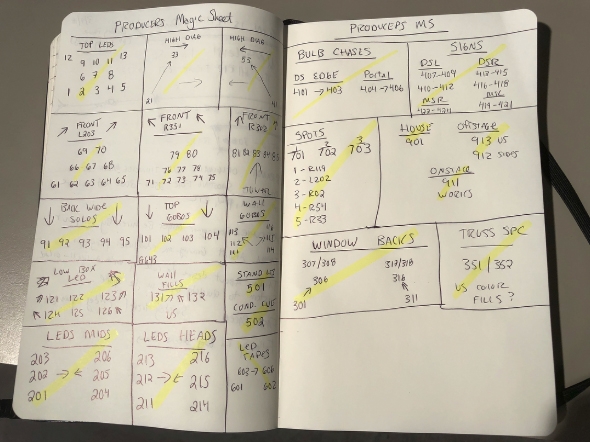 PRODUCERS Magic Sheet
TOP LEDS
12 9 10 11 13
6 7 8
1 2 3 4 5
HIGH DIAG
33
21
HIGH DIAG
53
41
FRONT
L203
69 70
66 67 68
61 62 63 64 65
FRONT
R331
79 80
76 77 78
71 72 73 74 75
FRONT
81 82 83 84 85
BACK WIDE
SOLOS
91 92 93 94 95
TOP
GOBOS
101 102 103 104
G643
WALL
GOBOS
LOW BOX
LED
121 122 123
124 125 126
WALL
FILLS
131 132
US
STAND LTS
501
COND. CUE
502
LEDS MIDS
203 206
202 205
201 204
LEDS HEADS
213 216
212 215
211 214
LED
TAPES
603 → 606
601 602
PRODUCERS MS
BULB CHASES
DS EDGE PORTAL
401 → 403 404 → 406
SIGNS
DSL DSR
407-409 413-415
410-412 416-418
MSR MSL
419-421
SPOTS
701 702 703
1 - R119
2 - L202
3 - R02
4 - R54
5 - R33
HOUSE
901
OFFSTAGE
913 US
912 SIDES
ONSTAGE
911
WORKS
WINDOW BACKS
307/308 317/318
306 316
301 311
TRUSS SPC
351 / 352
US COLOR
FILLS ?